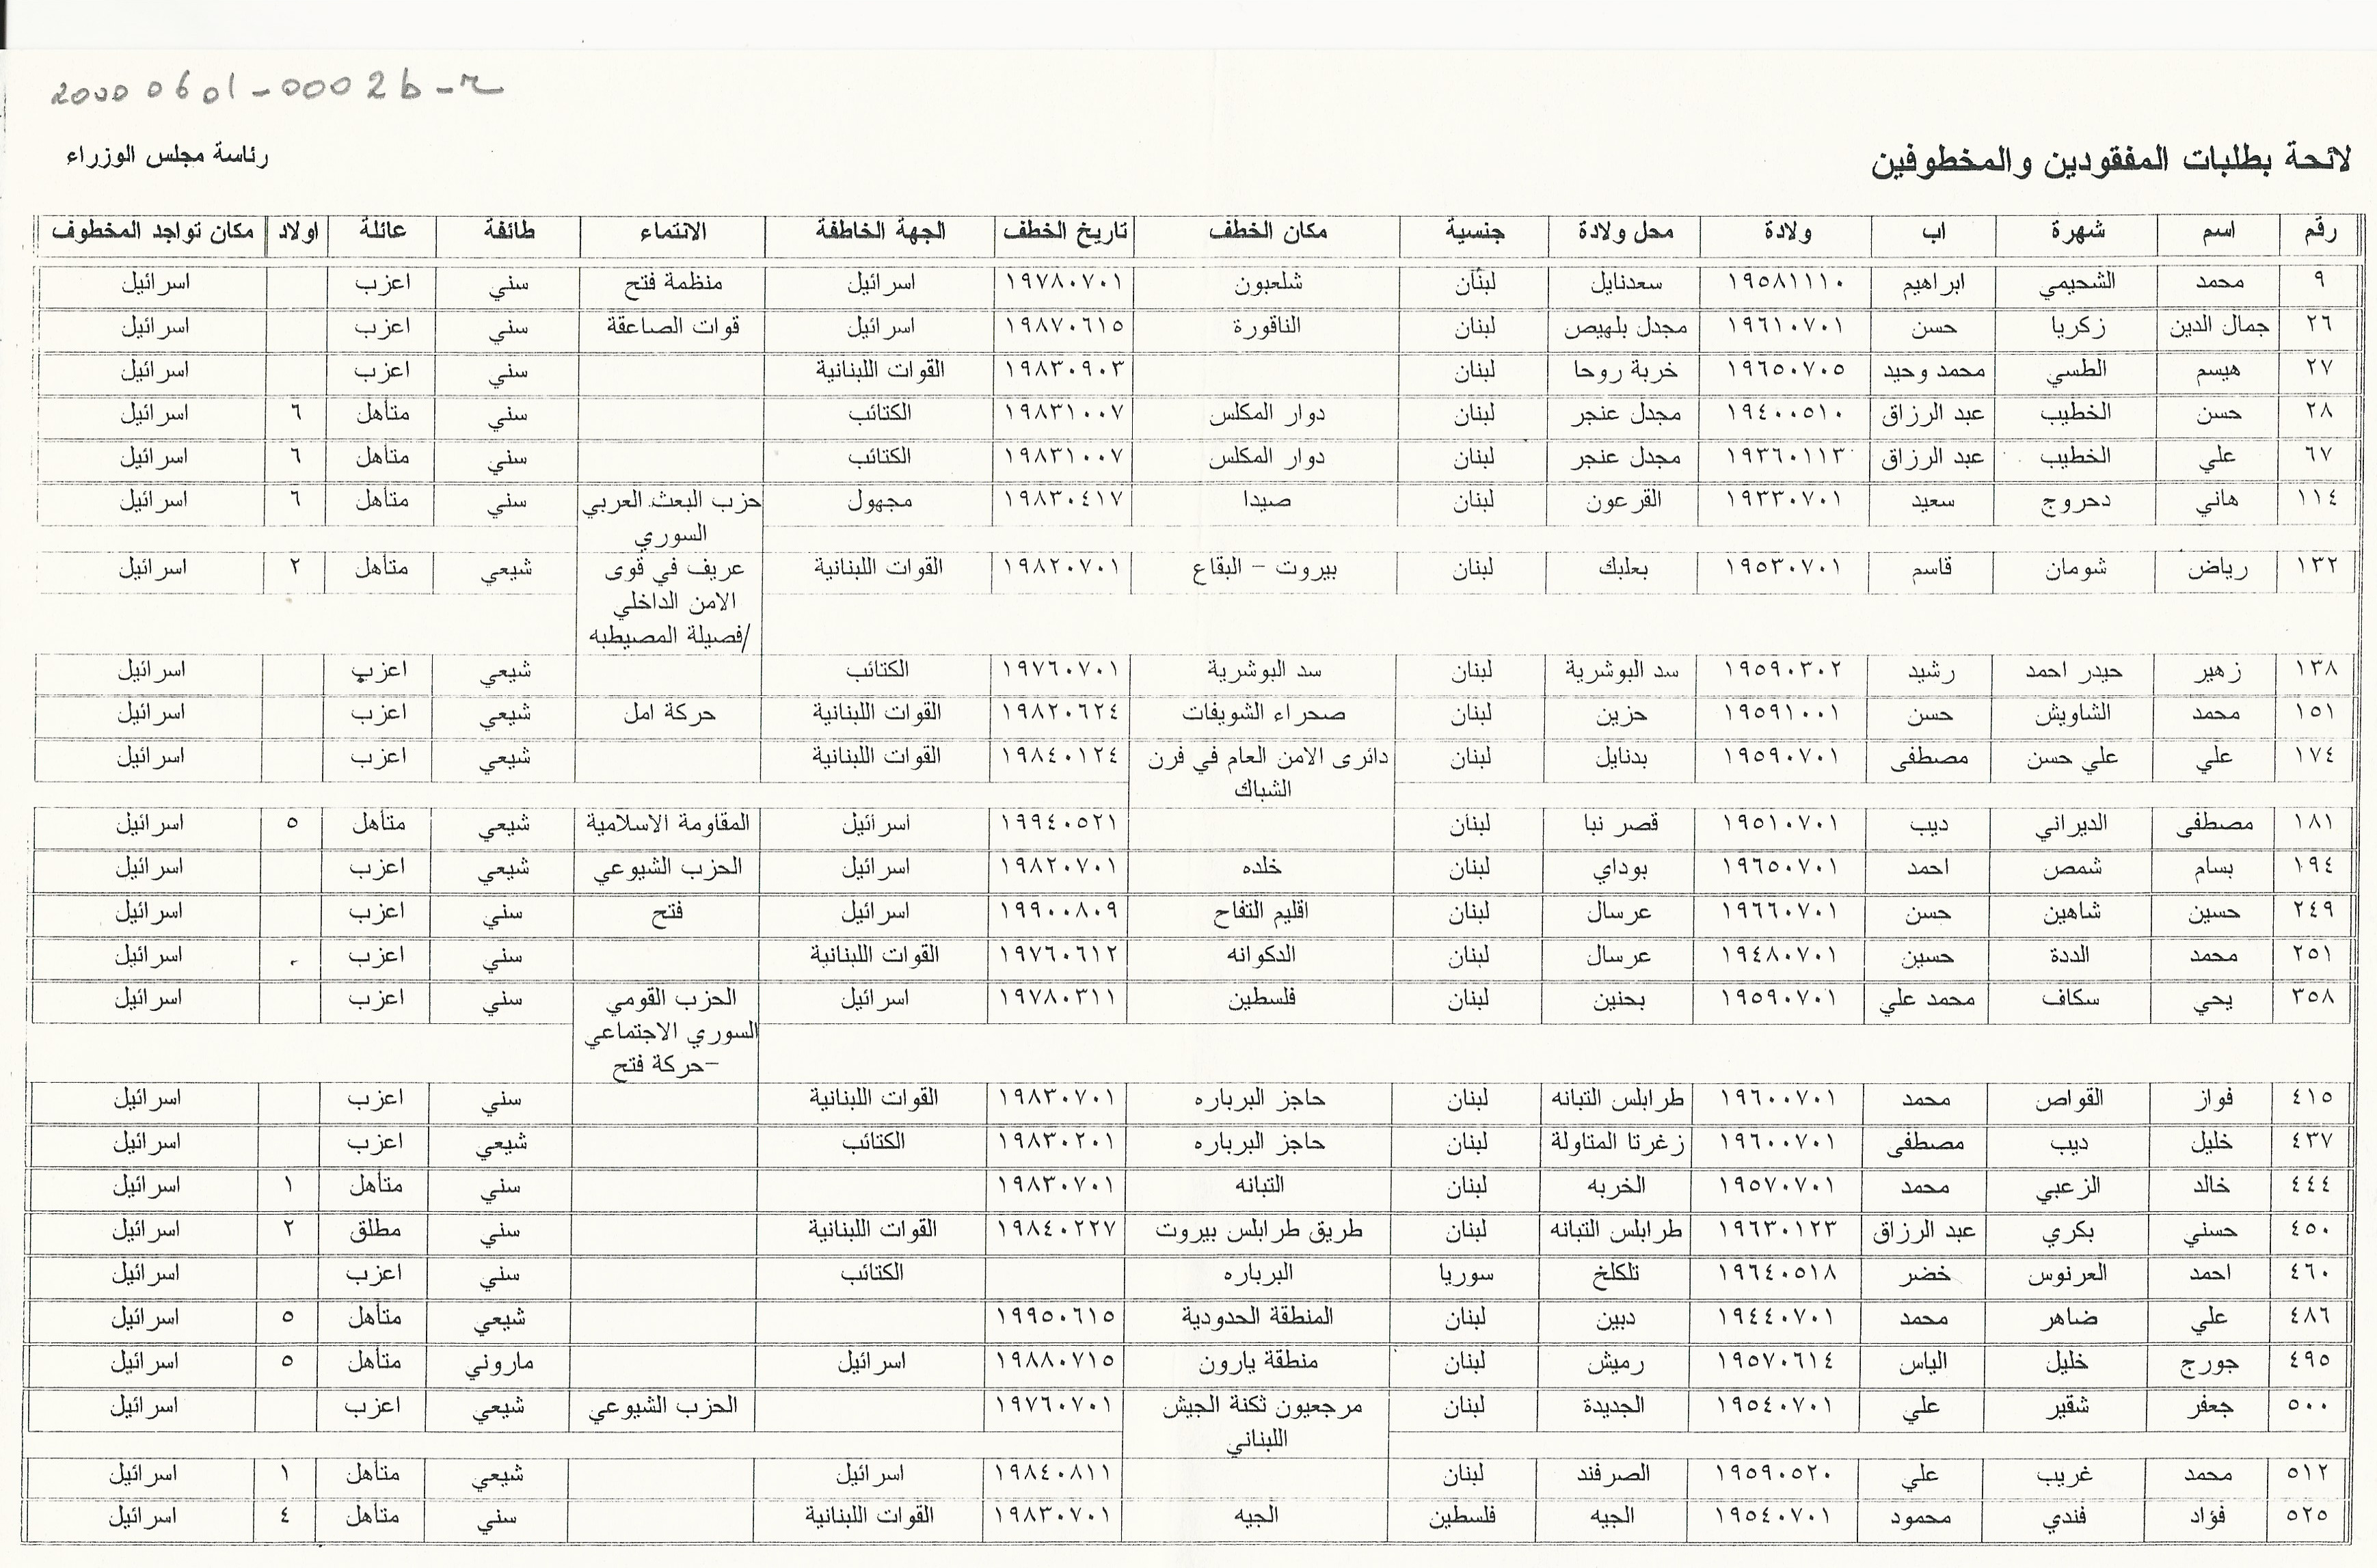 20000601-0002b-r
لائحة بطلبات المفقودين والمخطوفين
رئاسة مجلس الوزراء
رقم اسم شهرة اب ولادة محل ولادة جنسية مكان الخطف تاريخ الخطف الجهة الخاطفة الانتماء طائفة عائلة اولاد مكان تواجد المخطوف
٩ محمد الشحيمي ابراهيم ١٩٥٨١١١٠ سعدنايل لبنان شلعبون ١٩٧٨٠٧٠١ اسرائيل منظمة فتح سني اعزب اسرائيل
٢٦ جمال الدين زكريا حسن ١٩٦١٠٧٠١ مجدل بلهيص لبنان الناقورة ١٩٨٧٠٦١٥ اسرائيل قوات الصاعقة سني اعزب اسرائيل
٢٧ هيسم الطسي محمد وحيد ١٩٦٥٠٧٠٥ خربة روحا لبنان ١٩٨٣٠٩٠٣ القوات اللبنانية سني اعزب اسرائيل
٢٨ حسن الخطيب عبد الرزاق ١٩٤٠٠٥١٠ مجدل عنجر لبنان دوار المكلس ١٩٨٣١٠٠٧ الكتائب سني متأهل ٦ اسرائيل
٦٧ علي الخطيب عبد الرزاق ١٩٣٦٠١١٣ مجدل عنجر لبنان دوار المكلس ١٩٨٣١٠٠٧ الكتائب سني متأهل ٦ اسرائيل
١١٤ هاني دحروج سعيد ١٩٣٣٠٧٠١ القرعون لبنان صيدا ١٩٨٣٠٤١٧ مجهول حزب البعث العربي سني متأهل ٦ اسرائيل
السوري
١٣٢ رياض شومان قاسم ١٩٥٣٠٧٠١ بعلبك لبنان بيروت - البقاع ١٩٨٢٠٧٠١ القوات اللبنانية عريف في قوى شيعي متأهل ٢ اسرائيل
الامن الداخلي
/فصيلة المصيطبه
١٣٨ زهير حيدر احمد رشيد ١٩٥٩٠٣٠٢ سد البوشرية لبنان سد البوشرية ١٩٧٦٠٧٠١ الكتائب شيعي اعزب اسرائيل
١٥١ محمد الشاويش حسن ١٩٥٩١٠٠١ حزين لبنان صحراء الشويفات ١٩٨٢٠٦٢٤ القوات اللبنانية حركة امل شيعي اعزب اسرائيل
١٧٤ علي علي حسن مصطفى ١٩٥٩٠٧٠١ بدنايل لبنان دائرى الامن العام في فرن ١٩٨٤٠١٢٤ القوات اللبنانية شيعي اعزب اسرائيل
الشباك
١٨١ مصطفى الديراني ديب ١٩٥١٠٧٠١ قصر نبا لبنان ١٩٩٤٠٥٢١ اسرائيل المقاومة الاسلامية شيعي متأهل ٥ اسرائيل
١٩٤ بسام شمص احمد ١٩٦٥٠٧٠١ بوداي لبنان خلده ١٩٨٢٠٧٠١ اسرائيل الحزب الشيوعي شيعي اعزب اسرائيل
٢٤٩ حسين شاهين حسن ١٩٦٦٠٧٠١ عرسال لبنان اقليم التفاح ١٩٩٠٠٨٠٩ اسرائيل فتح سني اعزب اسرائيل
٢٥١ محمد الددة حسين ١٩٤٨٠٧٠١ عرسال لبنان الدكوانه ١٩٧٦٠٦١٢ القوات اللبنانية سني اعزب اسرائيل
٣٥٨ يحي سكاف محمد علي ١٩٥٩٠٧٠١ بحنين لبنان فلسطين ١٩٧٨٠٣١١ اسرائيل الحزب القومي سني اعزب اسرائيل
السوري الاجتماعي
-حركة فتح
٤١٥ فواز القواص محمد ١٩٦٠٠٧٠١ طرابلس التبانه لبنان حاجز البرباره ١٩٨٣٠٧٠١ القوات اللبنانية سني اعزب اسرائيل
٤٣٧ خليل ديب مصطفى ١٩٦٠٠٧٠١ زغرتا المتاولة لبنان حاجز البرباره ١٩٨٣٠٢٠١ الكتائب شيعي اعزب اسرائيل
٤٤٤ خالد الزعبي محمد ١٩٥٧٠٧٠١ الخربه لبنان التبانه ١٩٨٣٠٧٠١ سني متأهل ١ اسرائيل
٤٥٠ حسني بكري عبد الرزاق ١٩٦٣٠١٢٣ طرابلس التبانه لبنان طريق طرابلس بيروت ١٩٨٤٠٢٢٧ القوات اللبنانية سني مطلق ٢ اسرائيل
٤٦٠ احمد العرنوس خضر ١٩٦٤٠٥١٨ تلكلخ سوريا البرباره الكتائب سني اعزب اسرائيل
٤٨٦ علي ضاهر محمد ١٩٤٤٠٧٠١ دبين لبنان المنطقة الحدودية ١٩٩٥٠٦١٥ شيعي متأهل ٥ اسرائيل
٤٩٥ جورج خليل الياس ١٩٥٧٠٦١٤ رميش لبنان منطقة يارون ١٩٨٨٠٧١٥ اسرائيل ماروني متأهل ٥ اسرائيل
٥٠٠ جعفر شقير علي ١٩٥٤٠٧٠١ الجديدة لبنان مرجعيون ثكنة الجيش ١٩٧٦٠٧٠١ الحزب الشيوعي شيعي اعزب اسرائيل
اللبناني
٥١٢ محمد غريب علي ١٩٥٩٠٥٢٠ الصرفند لبنان ١٩٨٤٠٨١١ اسرائيل شيعي متأهل ١ اسرائيل
٥٢٥ فؤاد فندي محمود ١٩٥٤٠٧٠١ الجيه فلسطين الجيه ١٩٨٣٠٧٠١ القوات اللبنانية سني متأهل ٤ اسرائيل